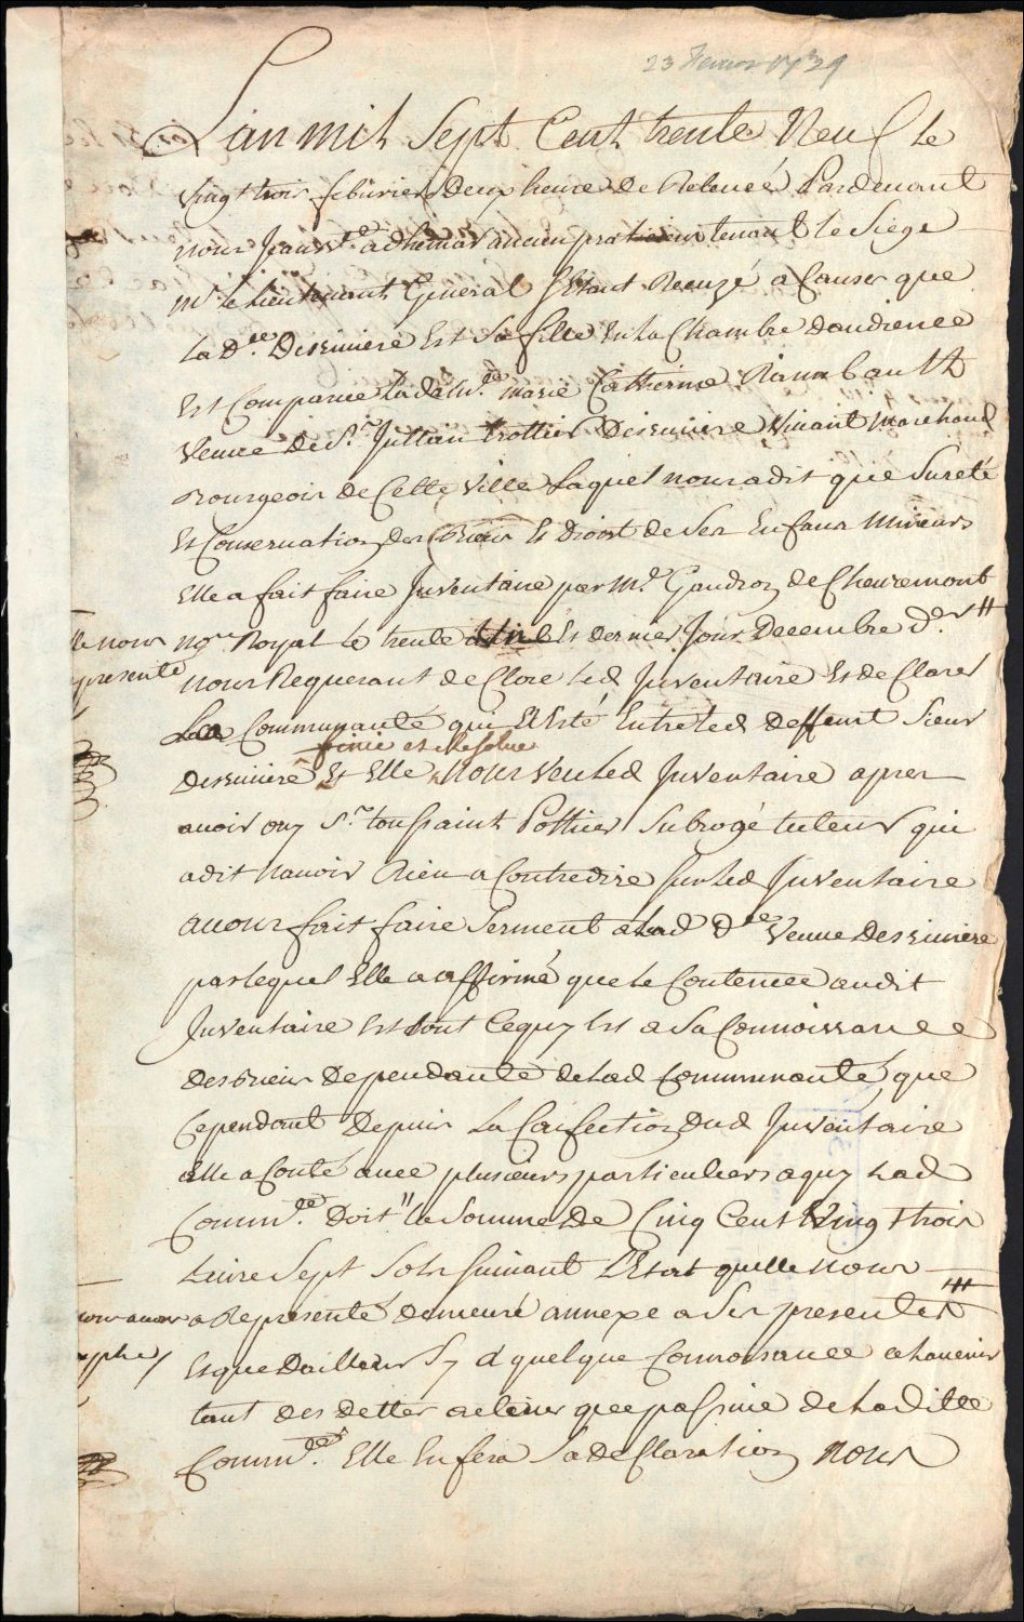 23 fevrier 1739
L'an mil Sept Cent trente Neuf le
vingt trois febvrier deux heures de Relevée Pardevant
nous Jean Bte. adhemar ancien praticien tenant le Siege
Mr. le Lieutenant General Sestant Recuzé a Causes que
La De.lle Desruniere Est Sa fille En La Chambre daudience
Est Comparue Lade. Marie Catherine Raimbault
Veuve de Sr. Jullien trottier Desriviere Vivant Marchand
Bourgeois de Cette Ville Laquel nous adit que Sureté
Et Conservation des Biens Et Droit de Ses Enfans Mineurs
Elle a fait faire Inventaire par Me. Gaudron de Chevremont
Nore. Royal le trente Et dernier Jour Decembre der. //
lle nous
represente
nous Requerant de Clore Led Inventaire Et de Clarer
La Communauté qui a Esté Entre Led Deffunt Sieur
finie et Resolue
desriviere Et Elle Nous Veu Led Inventaire apres
avoir ouy Sr. toussaint Pottier Subrogé tuteur qui
adit n'avoir Rien a Contredire sur Led Inventaire
avons fait faire Serment a Lad Delle Veuve Desriviere
par lequel Elle a affirmé que le Contenue audit
Inventaire Est tout Cequy Est a Sa Connoissance
des Biens Dependante de Lad Communauté, que
Cependant Depuis La Confection dud Inventaire
Elle a Conté avec plusieurs particuliers a quy Lad
Communté. Doit " la Somme De Cinq Cent Vingt trois
Livre Sept Sols Suivant L'Etat quelle nous
a Representé demeuré annexe a Ses presentes
nous avons
aphe /
Et que Dailleurs Sy d quelque Connoissance a Lavenir
tant des dettes active que passive de Laditte
Communté. Elle En fera Sa declaration Nous